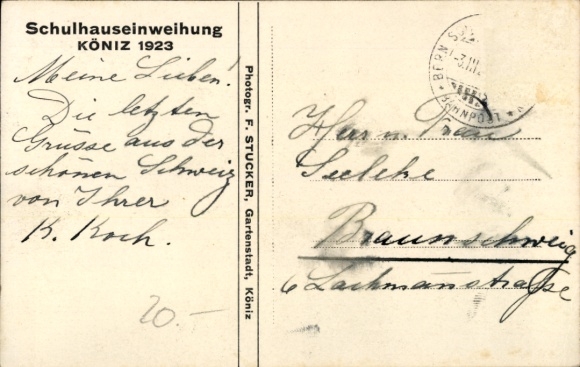 Schulhauseinweihung
KÖNIZ 1923
Meine Lieben!
Die letzten
Grüsse aus der
schönen Schweiz
von Ihrer
K. Koch.
20.–
Photogr. F. STUCKER, Gartenstadt, Köniz
BERN
BAHNPOST
Herr u. Frau
Seeleke
Braunschweig
6 Lachmanstraße